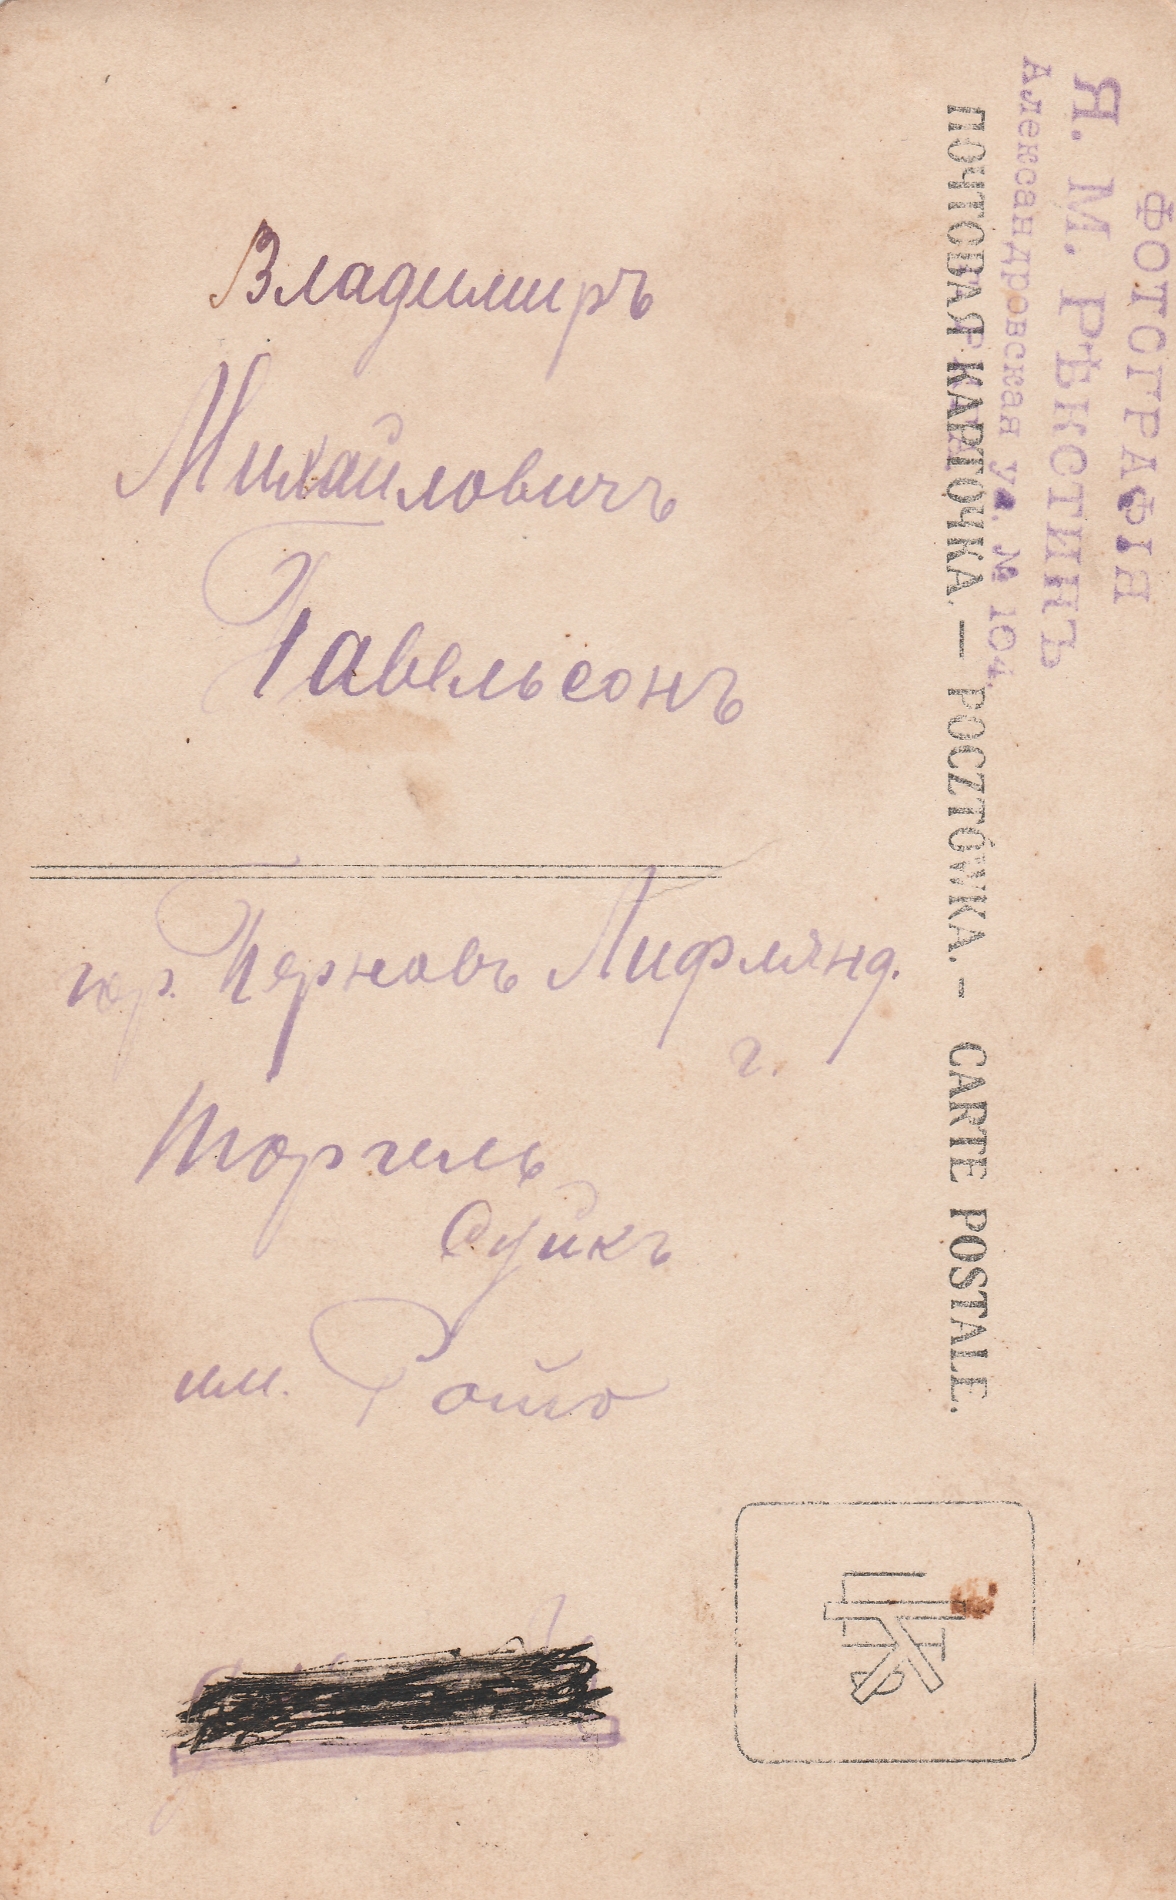 ФОТОГРАФІЯ
Я. М. РѢКСТИНЪ
Александровская ул. № 104.
ПОЧТОВАЯ КАРТОЧКА. — POCZTÓWKA. – CARTE POSTALE.
Владимиръ
Михайловичъ
Павельсонъ
гор. Перновъ Лифлянд.
г.
Торгель
Суикъ
им. Ройо